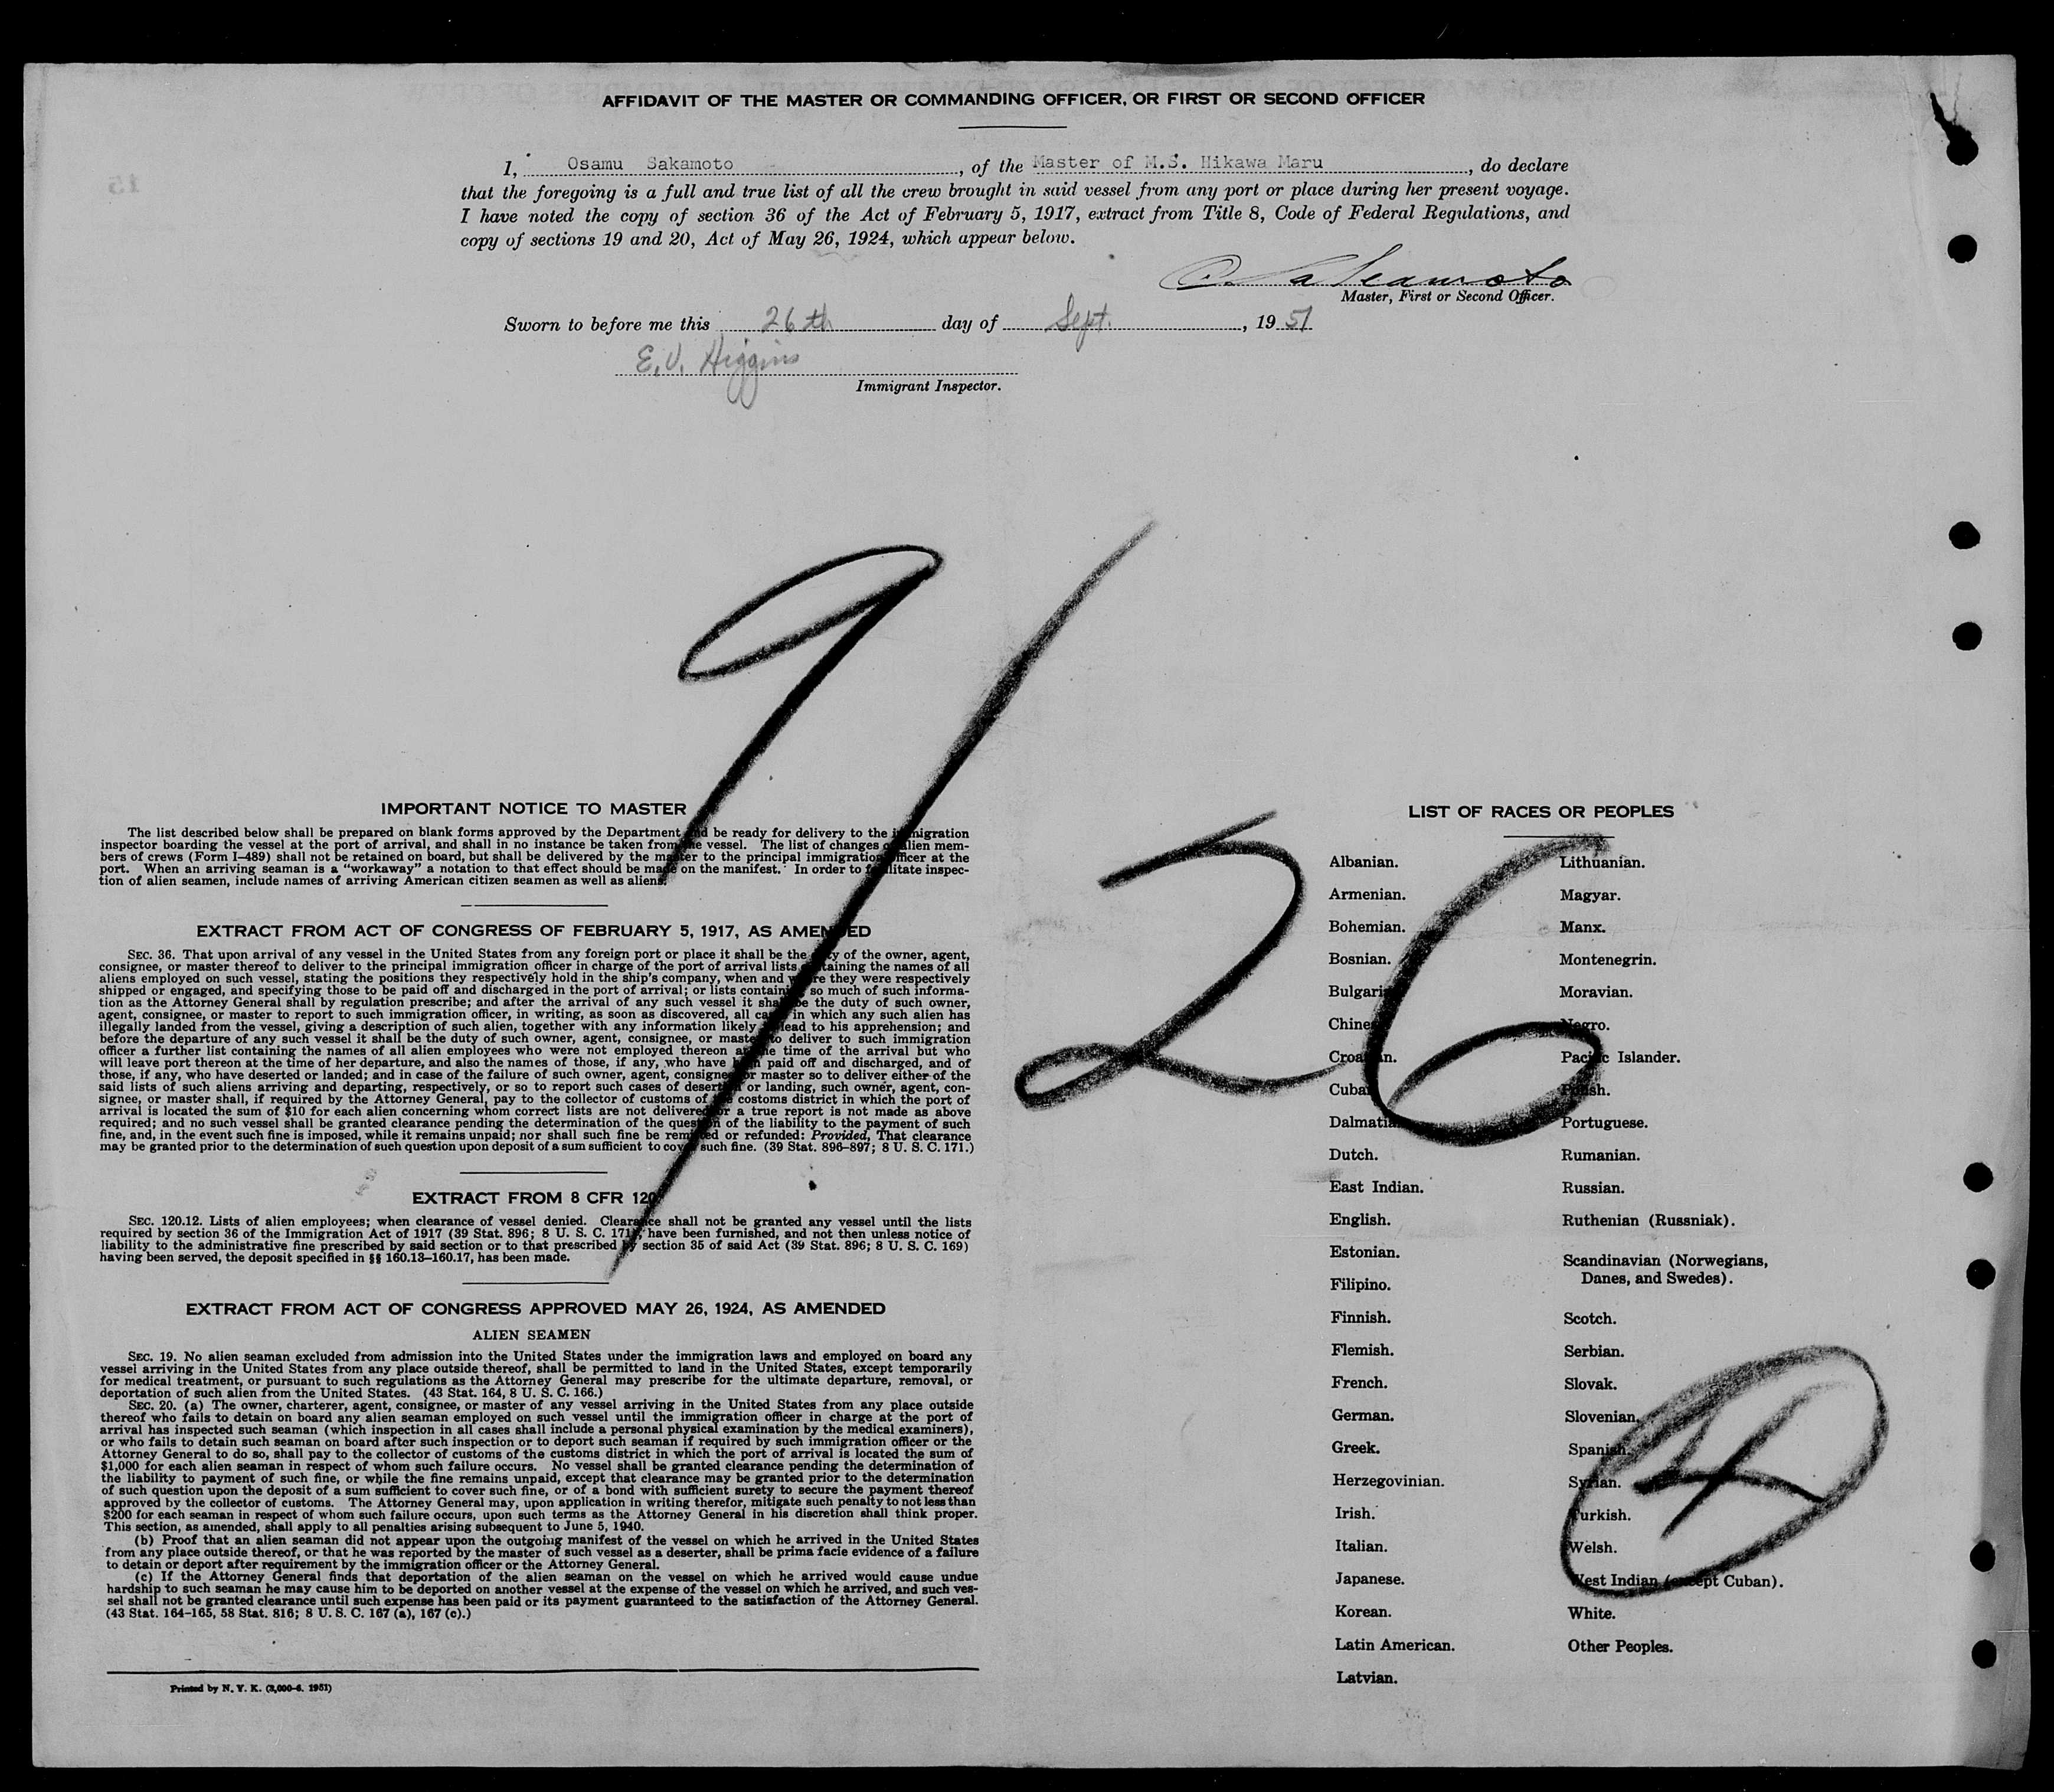 AFFIDAVIT OF THE MASTER OR COMMANDING OFFICER, OR FIRST OR SECOND OFFICER
I, Osamu Sakamoto, of the Master of M.S. Hikawa Maru, do declare
that the foregoing is a full and true list of all the crew brought in said vessel from any port or place during her present voyage.
I have noted the copy of section 36 of the Act of February 5, 1917, extract from Title 8, Code of Federal Regulations, and
copy of sections 19 and 20, Act of May 26, 1924, which appear below.
O. Sakamoto
Master, First or Second Officer.
Sworn to before me this 26th day of Sept., 1951
E.V. Higgins
Immigrant Inspector.
9/26
IMPORTANT NOTICE TO MASTER
The list described below shall be prepared on blank forms approved by the Department and be ready for delivery to the immigration
inspector boarding the vessel at the port of arrival, and shall in no instance be taken from the vessel. The list of changes of alien mem-
bers of crews (Form I-489) shall not be retained on board, but shall be delivered by the master to the principal immigration officer at the
port. When an arriving seaman is a "workaway" a notation to that effect should be made on the manifest. In order to facilitate inspec-
tion of alien seamen, include names of arriving American citizen seamen as well as aliens.
EXTRACT FROM ACT OF CONGRESS OF FEBRUARY 5, 1917, AS AMENDED
SEC. 36. That upon arrival of any vessel in the United States from any foreign port or place it shall be the duty of the owner, agent,
consignee, or master thereof to deliver to the principal immigration officer in charge of the port of arrival lists containing the names of all
aliens employed on such vessel, stating the positions they respectively hold in the ship's company, when and where they were respectively
shipped or engaged, and specifying those to be paid off and discharged in the port of arrival; or lists containing so much of such informa-
tion as the Attorney General shall by regulation prescribe; and after the arrival of any such vessel it shall be the duty of such owner,
agent, consignee, or master to report to such immigration officer, in writing, as soon as discovered, all cases in which any such alien has
illegally landed from the vessel, giving a description of such alien, together with any information likely to lead to his apprehension; and
before the departure of any such vessel it shall be the duty of such owner, agent, consignee, or master to deliver to such immigration
officer a further list containing the names of all alien employees who were not employed thereon at the time of the arrival but who
will leave port thereon at the time of her departure, and also the names of those, if any, who have been paid off and discharged, and of
those, if any, who have deserted or landed; and in case of the failure of such owner, agent, consignee or master so to deliver either of the
said lists of such aliens arriving and departing, respectively, or so to report such cases of desertion or landing, such owner, agent, con-
signee, or master shall, if required by the Attorney General, pay to the collector of customs of the costoms district in which the port of
arrival is located the sum of $10 for each alien concerning whom correct lists are not delivered or a true report is not made as above
required; and no such vessel shall be granted clearance pending the determination of the question of the liability to the payment of such
fine, and, in the event such fine is imposed, while it remains unpaid; nor shall such fine be remitted or refunded: Provided, That clearance
may be granted prior to the determination of such question upon deposit of a sum sufficient to cover such fine. (39 Stat. 896-897; 8 U. S. C. 171.)
EXTRACT FROM 8 CFR 120
SEC. 120.12. Lists of alien employees; when clearance of vessel denied. Clearance shall not be granted any vessel until the lists
required by section 36 of the Immigration Act of 1917 (39 Stat. 896; 8 U. S. C. 171), have been furnished, and not then unless notice of
liability to the administrative fine prescribed by said section or to that prescribed by section 35 of said Act (39 Stat. 896; 8 U. S. C. 169)
having been served, the deposit specified in §§ 160.13-160.17, has been made.
EXTRACT FROM ACT OF CONGRESS APPROVED MAY 26, 1924, AS AMENDED
ALIEN SEAMEN
SEC. 19. No alien seaman excluded from admission into the United States under the immigration laws and employed on board any
vessel arriving in the United States from any place outside thereof, shall be permitted to land in the United States, except temporarily
for medical treatment, or pursuant to such regulations as the Attorney General may prescribe for the ultimate departure, removal, or
deportation of such alien from the United States. (43 Stat. 164, 8 U. S. C. 166.)
SEC. 20. (a) The owner, charterer, agent, consignee, or master of any vessel arriving in the United States from any place outside
thereof who fails to detain on board any alien seaman employed on such vessel until the immigration officer in charge at the port of
arrival has inspected such seaman (which inspection in all cases shall include a personal physical examination by the medical examiners),
or who fails to detain such seaman on board after such inspection or to deport such seaman if required by such immigration officer or the
Attorney General to do so, shall pay to the collector of customs of the customs district in which the port of arrival is located the sum of
$1,000 for each alien seaman in respect of whom such failure occurs. No vessel shall be granted clearance pending the determination of
the liability to payment of such fine, or while the fine remains unpaid, except that clearance may be granted prior to the determination
of such question upon the deposit of a sum sufficient to cover such fine, or of a bond with sufficient surety to secure the payment thereof
approved by the collector of customs. The Attorney General may, upon application in writing therefor, mitigate such penalty to not less than
$200 for each seaman in respect of whom such failure occurs, upon such terms as the Attorney General in his discretion shall think proper.
This section, as amended, shall apply to all penalties arising subsequent to June 5, 1940.
(b) Proof that an alien seaman did not appear upon the outgoing manifest of the vessel on which he arrived in the United States
from any place outside thereof, or that he was reported by the master of such vessel as a deserter, shall be prima facie evidence of a failure
to detain or deport after requirement by the immigration officer or the Attorney General.
(c) If the Attorney General finds that deportation of the alien seaman on the vessel on which he arrived would cause undue
hardship to such seaman he may cause him to be deported on another vessel at the expense of the vessel on which he arrived, and such ves-
sel shall not be granted clearance until such expense has been paid or its payment guaranteed to the satisfaction of the Attorney General.
(43 Stat. 164-165, 58 Stat. 816; 8 U. S. C. 167 (a), 167 (c).)
Printed by N. Y. K. (3,000-6. 1951)
LIST OF RACES OR PEOPLES
Albanian.
Armenian.
Bohemian.
Bosnian.
Bulgarian.
Chinese.
Croatian.
Cuban.
Dalmatian.
Dutch.
East Indian.
English.
Estonian.
Filipino.
Finnish.
Flemish.
French.
German.
Greek.
Herzegovinian.
Irish.
Italian.
Japanese.
Korean.
Latin American.
Latvian.
Lithuanian.
Magyar.
Manx.
Montenegrin.
Moravian.
Negro.
Pacific Islander.
Polish.
Portuguese.
Rumanian.
Russian.
Ruthenian (Russniak).
Scandinavian (Norwegians,
Danes, and Swedes).
Scotch.
Serbian.
Slovak.
Slovenian.
Spanish.
Syrian.
Turkish.
Welsh.
West Indian (except Cuban).
White.
Other Peoples.
4